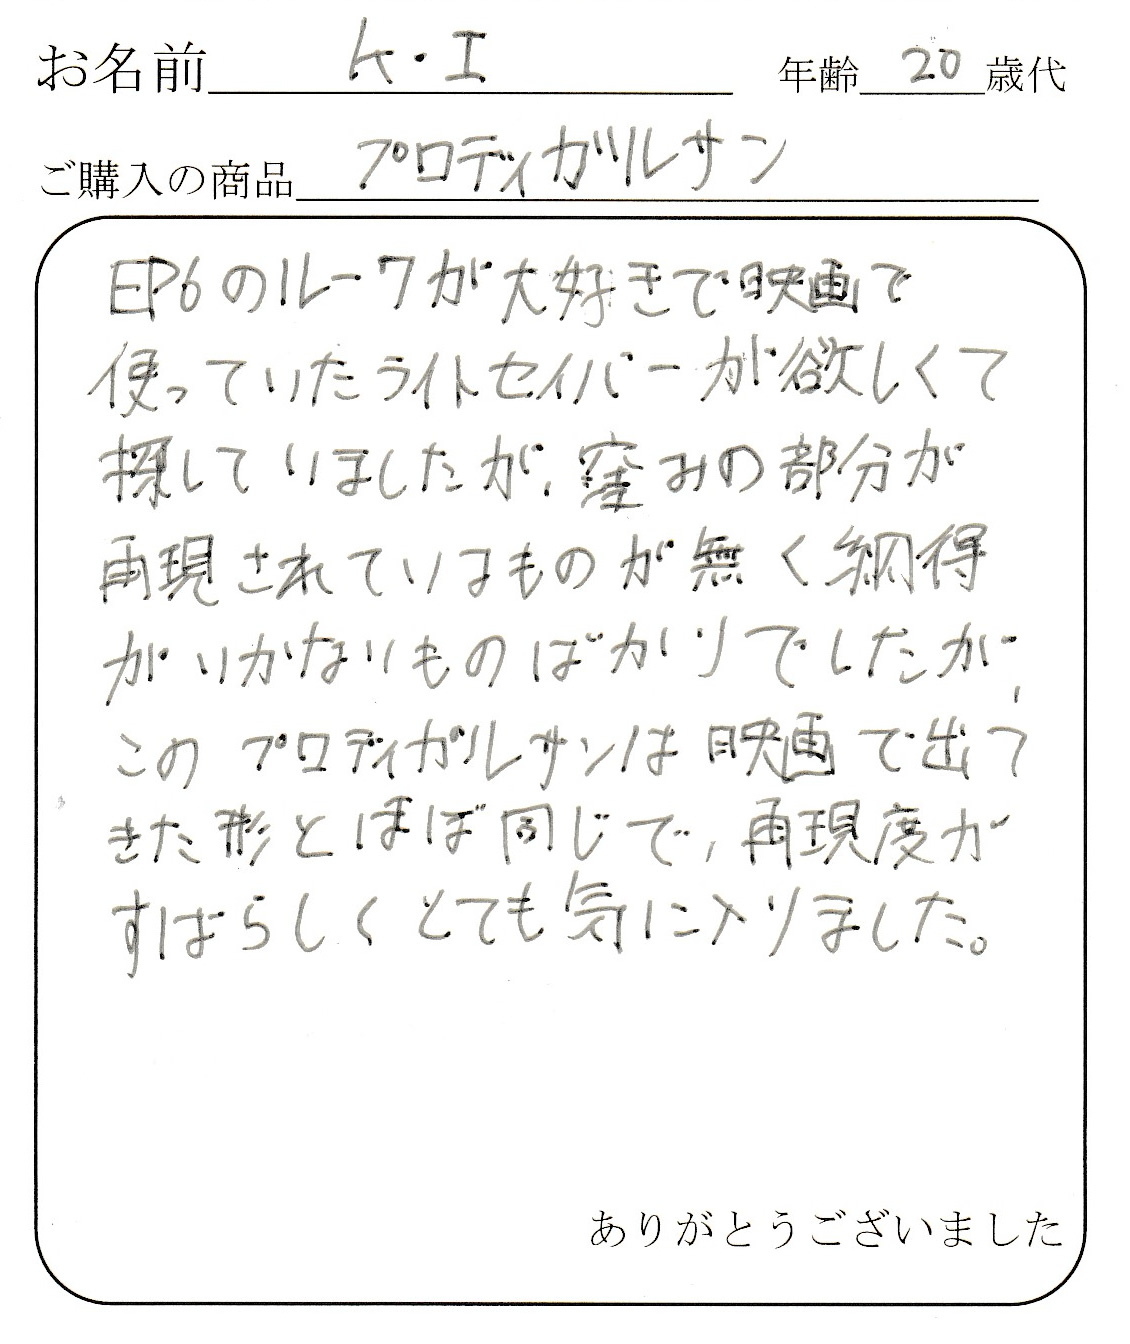 お名前 K・I 年齢 20 歳代
ご購入の商品 プロディガルサン
EP6のルークが大好きで映画で
使っていたライトセイバーが欲しくて
探していましたが、窪みの部分が
再現されているものが無く納得
がいかないものばかりでしたが、
このプロディガルサンは映画で出て
きた形とほぼ同じで、再現度が
すばらしくとても気に入りました。
ありがとうございました